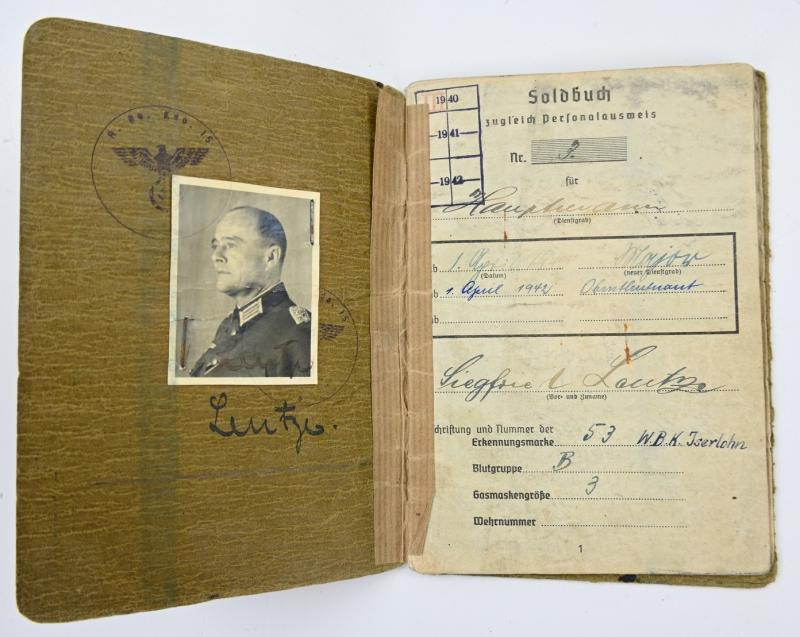 K. Bv. Kdo. 15
Lentze.
1940
1941
1942
Soldbuch
zugleich Personalausweis
Nr. 3.
für
Hauptmann
(Dienstgrad)
ab 1. Major
(Datum) (neuer Dienstgrad)
ab 1. April 1942 Oberstleutnant
ab
Siegfried Lentze
(Vor- und Zuname)
chriftung und Nummer der
Erkennungsmarke 53 W.B.K. Iserlohn
Blutgruppe B
Gasmaskengröße 3
Wehrnummer
1